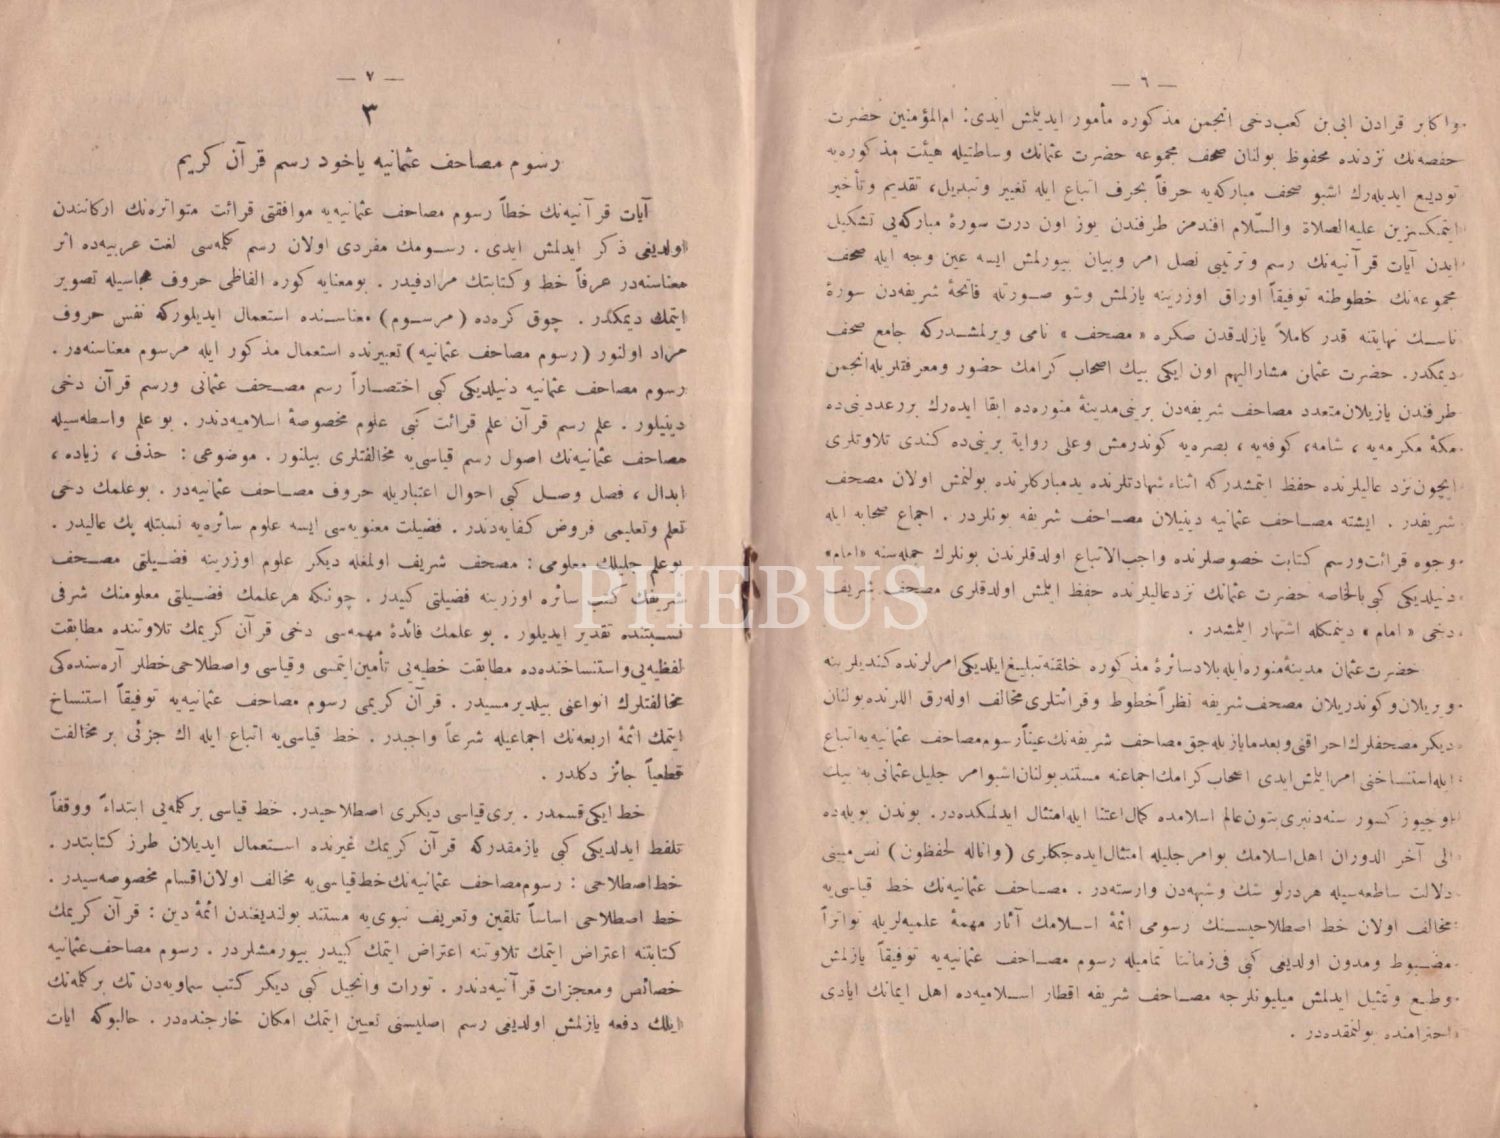 — ٦ —
واكابر قرادن ابى بن كعب دخى انجمن مذكوره مأمور ايدلمش ايدى: ام المؤمنين حضرت
حفصه‌نك نزدنده محفوظ بولنان صحف مجموعه حضرت عثمانك وساطتيله هيئت مذكوره‌يه
توديع ايديله‌رك اشبو صحف مباركه‌يه حرفاً بحرف اتباع ايله تغيير وتبديل، تقديم وتأخير
ايتمكسزين عليه الصلاة والسّلام افندمز طرفندن يوز اون درت سورهٔ مباركه‌يى تشكيل
ايدن آيات قرآنيه‌نك رسم وترتيبى نصل امر وبيان بيورلمش ايسه عين وجه ايله صحف
مجموعه‌نك خطوطنه توفيقاً اوراق اوزرينه يازلمش وشو صورتله فاتحهٔ شريفه‌دن سورهٔ
ناسك نهايتنه قدر كاملاً يازلدقدن صكره « مصحف » نامى ويرلمشدركه جامع صحف
ديمكدر. حضرت عثمان مشاراليهم اون ايكى بيك اصحاب كرامك حضور ومعرفتلريله انجمن
طرفندن يازيلان متعدد مصاحف شريفه‌دن برينى مدينهٔ منوره‌ده ابقا ايده‌رك برر عددينى ده
مكهٔ مكرمه‌يه ، شامه، كوفه‌يه ، بصره‌يه كوندرمش وعلى رواية برينى ده كندى تلاوتلرى
ايچون نزد عاليلرنده حفظ ايتمشدركه اثناء شهادتلرنده يد مباركلرنده بولنمش اولان مصحف
شريفدر . ايشته مصاحف عثمانيه دينيلان مصاحف شريفه بونلردر . اجماع صحابه ايله
وجوه قرائت ورسم كتابت خصوصلرنده واجب الاتباع اولدقلرندن بونلرك جمله‌سنه «امام»
دنيلديكى كبى بالخاصه حضرت عثمانك نزد عاليلرنده حفظ ايتلش اولدقلرى مصحف شريف
دخى « امام » دينمكله اشتهار ايتمشدر .
حضرت عثمان مدينهٔ منوره ايله بلاد سائرهٔ مذكوره خلقنه تبليغ ايلديكى امرلرنده كنديلرينه
ويريلان وكوندريلان مصحف شريفه نظراً خطوط وقرائتلرى مخالف اوله‌رق اللرنده بولنان
ديكر مصحفلرك احراقنى وبعدما يازيله‌جق مصاحف شريفه‌نك عيناً رسوم مصاحف عثمانيه‌يه اتباع
ايله استنساخنى امر ايتلش ايدى اصحاب كرامك اجماعنه مستند بولنان اشبو امر جليل عثمانى يه بيك
اوچيوز كسور سنه‌دنبرى بتون عالم اسلامده كمال اعتنا ايله امتثال ايدلمكده‌در. بوندن بويله‌ده
الى آخر الدوران اهل اسلامك بو امر جليله امتثال ايده‌جكلرى (وانا له لحفظون) نص مبينى
دلالت ساطعه‌سيله هر درلو شك وشبهه‌دن وارسته‌در . مصاحف عثمانيه‌نك خط قياسى‌يه
مخالف اولان خط اصطلاحيسنك رسومى ائمهٔ اسلامك آثار مهمهٔ علميه‌لريله تواتراً
مضبوط ومدون اولديغى كبى فى زماننا تماميله رسوم مصاحف عثمانيه‌يه توفيقاً يازلمش
وطبع وتمثيل ايدلمش ميليونلرجه مصاحف شريفه اقطار اسلاميه‌ده اهل ايمانك ايادى
احترامنده بولنمقده‌در .
— ٧ —
٣
رسوم مصاحف عثمانيه ياخود رسم قرآن كريم
آيات قرآنيه‌نك خطاً رسوم مصاحف عثمانيه‌يه موافقتى قرائت متواتره‌نك اركانندن
اولديغى ذكر ايدلمش ايدى . رسومك مفردى اولان رسم كلمه‌سى لغت عربيه‌ده اثر
معناسنه‌در عرفاً خط وكتابتك مرادفيدر . بومعنايه كوره الفاظى حروف هجاسيله تصوير
ايتمك ديمكدر . چوق كره‌ده (مرسوم) معناسنده استعمال ايديلوركه نفس حروف
مراد اولنور (رسوم مصاحف عثمانيه) تعبيرنده استعمال مذكور ايله مرسوم معناسنه‌در .
رسوم مصاحف عثمانيه دنيلديكى كبى اختصاراً رسم مصحف عثمانى ورسم قرآن دخى
دينيلور . علم رسم قرآن علم قرائت كبى علوم مخصوصهٔ اسلاميه‌دندر . بو علم واسطه‌سيله
مصاحف عثمانيه‌نك اصول رسم قياسى‌يه مخالفتلرى بيلنور . موضوعى : حذف ، زياده ،
ابدال ، فصل وصل كبى احوال اعتباريله حروف مصاحف عثمانيه‌در . بوعلمك دخى
تعلم وتعليمى فروض كفايه‌دندر . فضيلت معنويه‌سى ايسه علوم سائره‌يه نسبتله پك عاليدر .
بو علم جليلك معلومى : مصحف شريف اولمغله ديكر علوم اوزرينه فضيلتى مصحف
شريفك كتب سائره اوزرينه فضيلتى كبيدر . چونكه هر علمك فضيلتى معلومنك شرفى
نسبتنده تقدير ايديلور . بو علمك فائدهٔ مهمه‌سى دخى قرآن كريمك تلاوتنده مطابقت
لفظيه‌يى واستنساخنده‌ده مطابقت خطيه‌يى تأمين ايتمسى وقياسى واصطلاحى خطلر آره‌سنده‌كى
مخالفتلرك انواعنى بيلديرمسيدر . قرآن كريمى رسوم مصاحف عثمانيه‌يه توفيقاً استنساخ
ايتمك ائمهٔ اربعه‌نك اجماعيله شرعاً واجبدر . خط قياسى‌يه اتباع ايله اك جزئى بر مخالفت
قطعياً جائز دكلدر .
خط ايكى قسمدر . برى قياسى ديكرى اصطلاحيدر. خط قياسى بركلمه‌يى ابتداءً ووقفاً
تلفظ ايدلديكى كبى يازمقدركه قرآن كريمك غيرنده استعمال ايديلان طرز كتابتدر .
خط اصطلاحى : رسوم مصاحف عثمانيه‌نك خط قياسى‌يه مخالف اولان اقسام مخصوصه‌سيدر .
خط اصطلاحى اساساً تلقين وتعريف نبوى‌يه مستند بولنديغندن ائمهٔ دين : قرآن كريمك
كتابتنه اعتراض ايتمك تلاوتنه اعتراض ايتمك كبيدر بيورمشلردر . رسوم مصاحف عثمانيه
خصائص ومعجزات قرآنيه‌دندر . تورات وانجيل كبى ديكر كتب سماويه‌دن تك بركلمه‌نك
ايلك دفعه يازلمش اولديغى رسم اصليسنى تعيين ايتمك امكان خارجنده‌در . حالبوكه آيات
PHEBUS